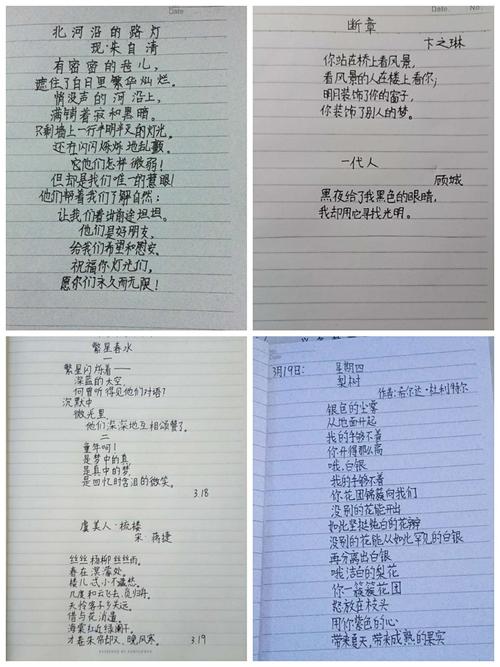 Date
北河沿的路灯
现·朱自清
有密密的毡儿，
遮住了白日里繁华灿烂。
悄没声的河沿上，
满铺着寂和黑暗。
只剩墙上一行半明半灭的灯光。
还在闪闪烁烁地乱颤。
它们怎样微弱！
但却是我们唯一的慧眼！
他们帮着我们了解自然；
让我们看出前途坦坦。
他们是好朋友，
给我们希望和慰安。
祝福你灯光们，
愿你们永久而无限！
Date. No.
断章
卞之琳
你站在桥上看风景，
看风景的人在楼上看你；
明月装饰了你的窗子，
你装饰了别人的梦。
一代人
顾城
黑夜给了我黑色的眼睛，
我却用它寻找光明。
繁星春水
一
繁星闪烁着——
深蓝的太空，
何曾听得见他们对语？
沉默中
微光里
他们深深地互相颂赞了。
二
童年呵！
是梦中的真
是真中的梦，
是回忆时含泪的微笑。
3.18
虞美人·梳楼
宋·蒋捷
丝丝杨柳丝丝雨。
春在溟濛处。
楼儿忒小不藏愁。
几度和云飞去、觅归舟。
天怜客子乡关远。
借与花消遣。
海棠红近绿阑干。
才卷朱帘却又、晚风寒。
3.19
3月19日：
星期四
梨树
作者：希尔达·杜利特尔
银色的尘雾
从地面升起
我的手够不着
你升得那么高
哦，白银
我的手够不着
你花团锦簇向我们
没别的花能开出
如此坚挺纯白的花瓣
没别的花能从如此罕见的白银
再分离出白银
哦洁白的梨花
你一簇簇花团
怒放在枝头
用你紫色的心
带来夏天，带来成熟的果实